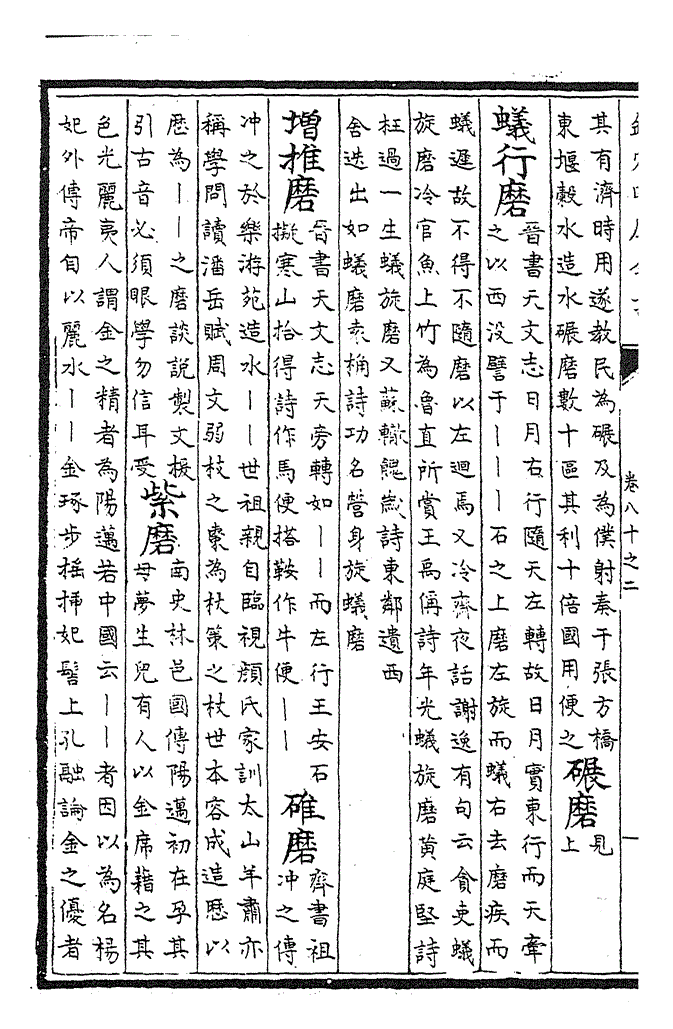 卷八十之二
其有濟時用遂教民為碾及為僕射奏于張方橋
東堰穀水造水碾磨數十區其利十倍國用便之
碾磨
見
上
蟻行磨
晉書天文志日月右行隨天左轉故日月實東行而天牽
之以西没譬于丨丨丨石之上磨左旋而蟻右去磨疾而
蟻遲故不得不隨磨以左迴焉又冷齋夜話謝逸有句云貪吏蟻
旋磨冷官魚上竹為魯直所賞王禹偁詩年光蟻旋磨黃庭堅詩
枉過一生蟻旋磨又蘇轍餽歲詩東鄰遺西
舍迭出如蟻磨袁桷詩功名營身旋蟻磨
增推磨
晉書天文志天旁轉如丨丨而左行王安石
擬寒山拾得詩作馬便搭鞍作牛便丨丨
碓磨
齊書祖
冲之傳
冲之於樂游苑造水丨丨世祖親自臨視顔氏家訓太山羊肅亦
稱學問讀潘岳賦周文弱枝之棗為杖策之杖世本容成造歷以
歷為丨丨之磨談說製文援
引古音必須眼學勿信耳受
紫磨
南史林邑國傳陽邁初在孕其
母夢生兒有人以金席藉之其
色光麗夷人謂金之精者為陽邁若中國云丨丨者因以為名楊
妃外傳帝自以麗水丨丨金琢步搖揷妃髻上孔融論金之優者